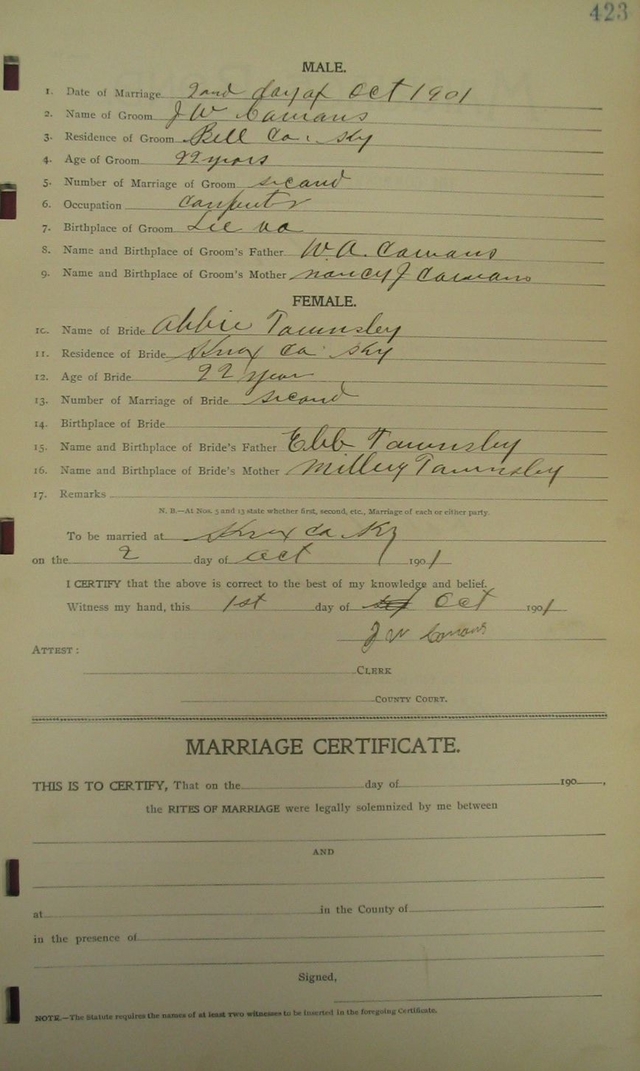 423
MALE.
1. Date of Marriage 2nd day of Oct 1901
2. Name of Groom J W Comans
3. Residence of Groom Bell Co. Ky
4. Age of Groom 22 years
5. Number of Marriage of Groom second
6. Occupation Carpenter
7. Birthplace of Groom Lee va
8. Name and Birthplace of Groom's Father W. A. Comans
9. Name and Birthplace of Groom's Mother Nancy J Comans
FEMALE.
10. Name of Bride Abbie Townsley
11. Residence of Bride Knox Co. Ky
12. Age of Bride 22 year
13. Number of Marriage of Bride second
14. Birthplace of Bride
15. Name and Birthplace of Bride's Father Ebb Townsley
16. Name and Birthplace of Bride's Mother Townsley
17. Remarks
N. B.—At Nos. 5 and 13 state whether first, second, etc., Marriage of each or either party.
To be married at Knox Co. Ky
on the 2 day of Oct 1901
I CERTIFY that the above is correct to the best of my knowledge and belief.
Witness my hand, this 1st day of Oct 1901
J W Comans
ATTEST:
CLERK
COUNTY COURT.
MARRIAGE CERTIFICATE.
THIS IS TO CERTIFY, That on the day of 190 ,
the RITES OF MARRIAGE were legally solemnized by me between
AND
at in the County of
in the presence of
Signed,
NOTE.—The Statute requires the names of at least two witnesses to be inserted in the foregoing Certificate.